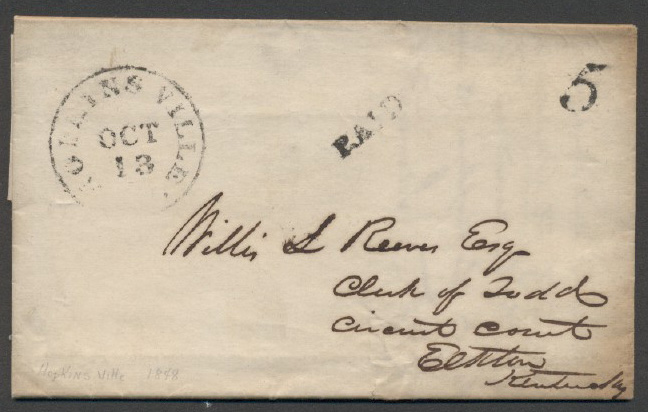 HOPKINSVILLE
OCT
13
PAID
5
Willis L Reeves Esq
Clerk of Todd
Circuit Court
Elkton
Kentucky
Hopkins ville 1858